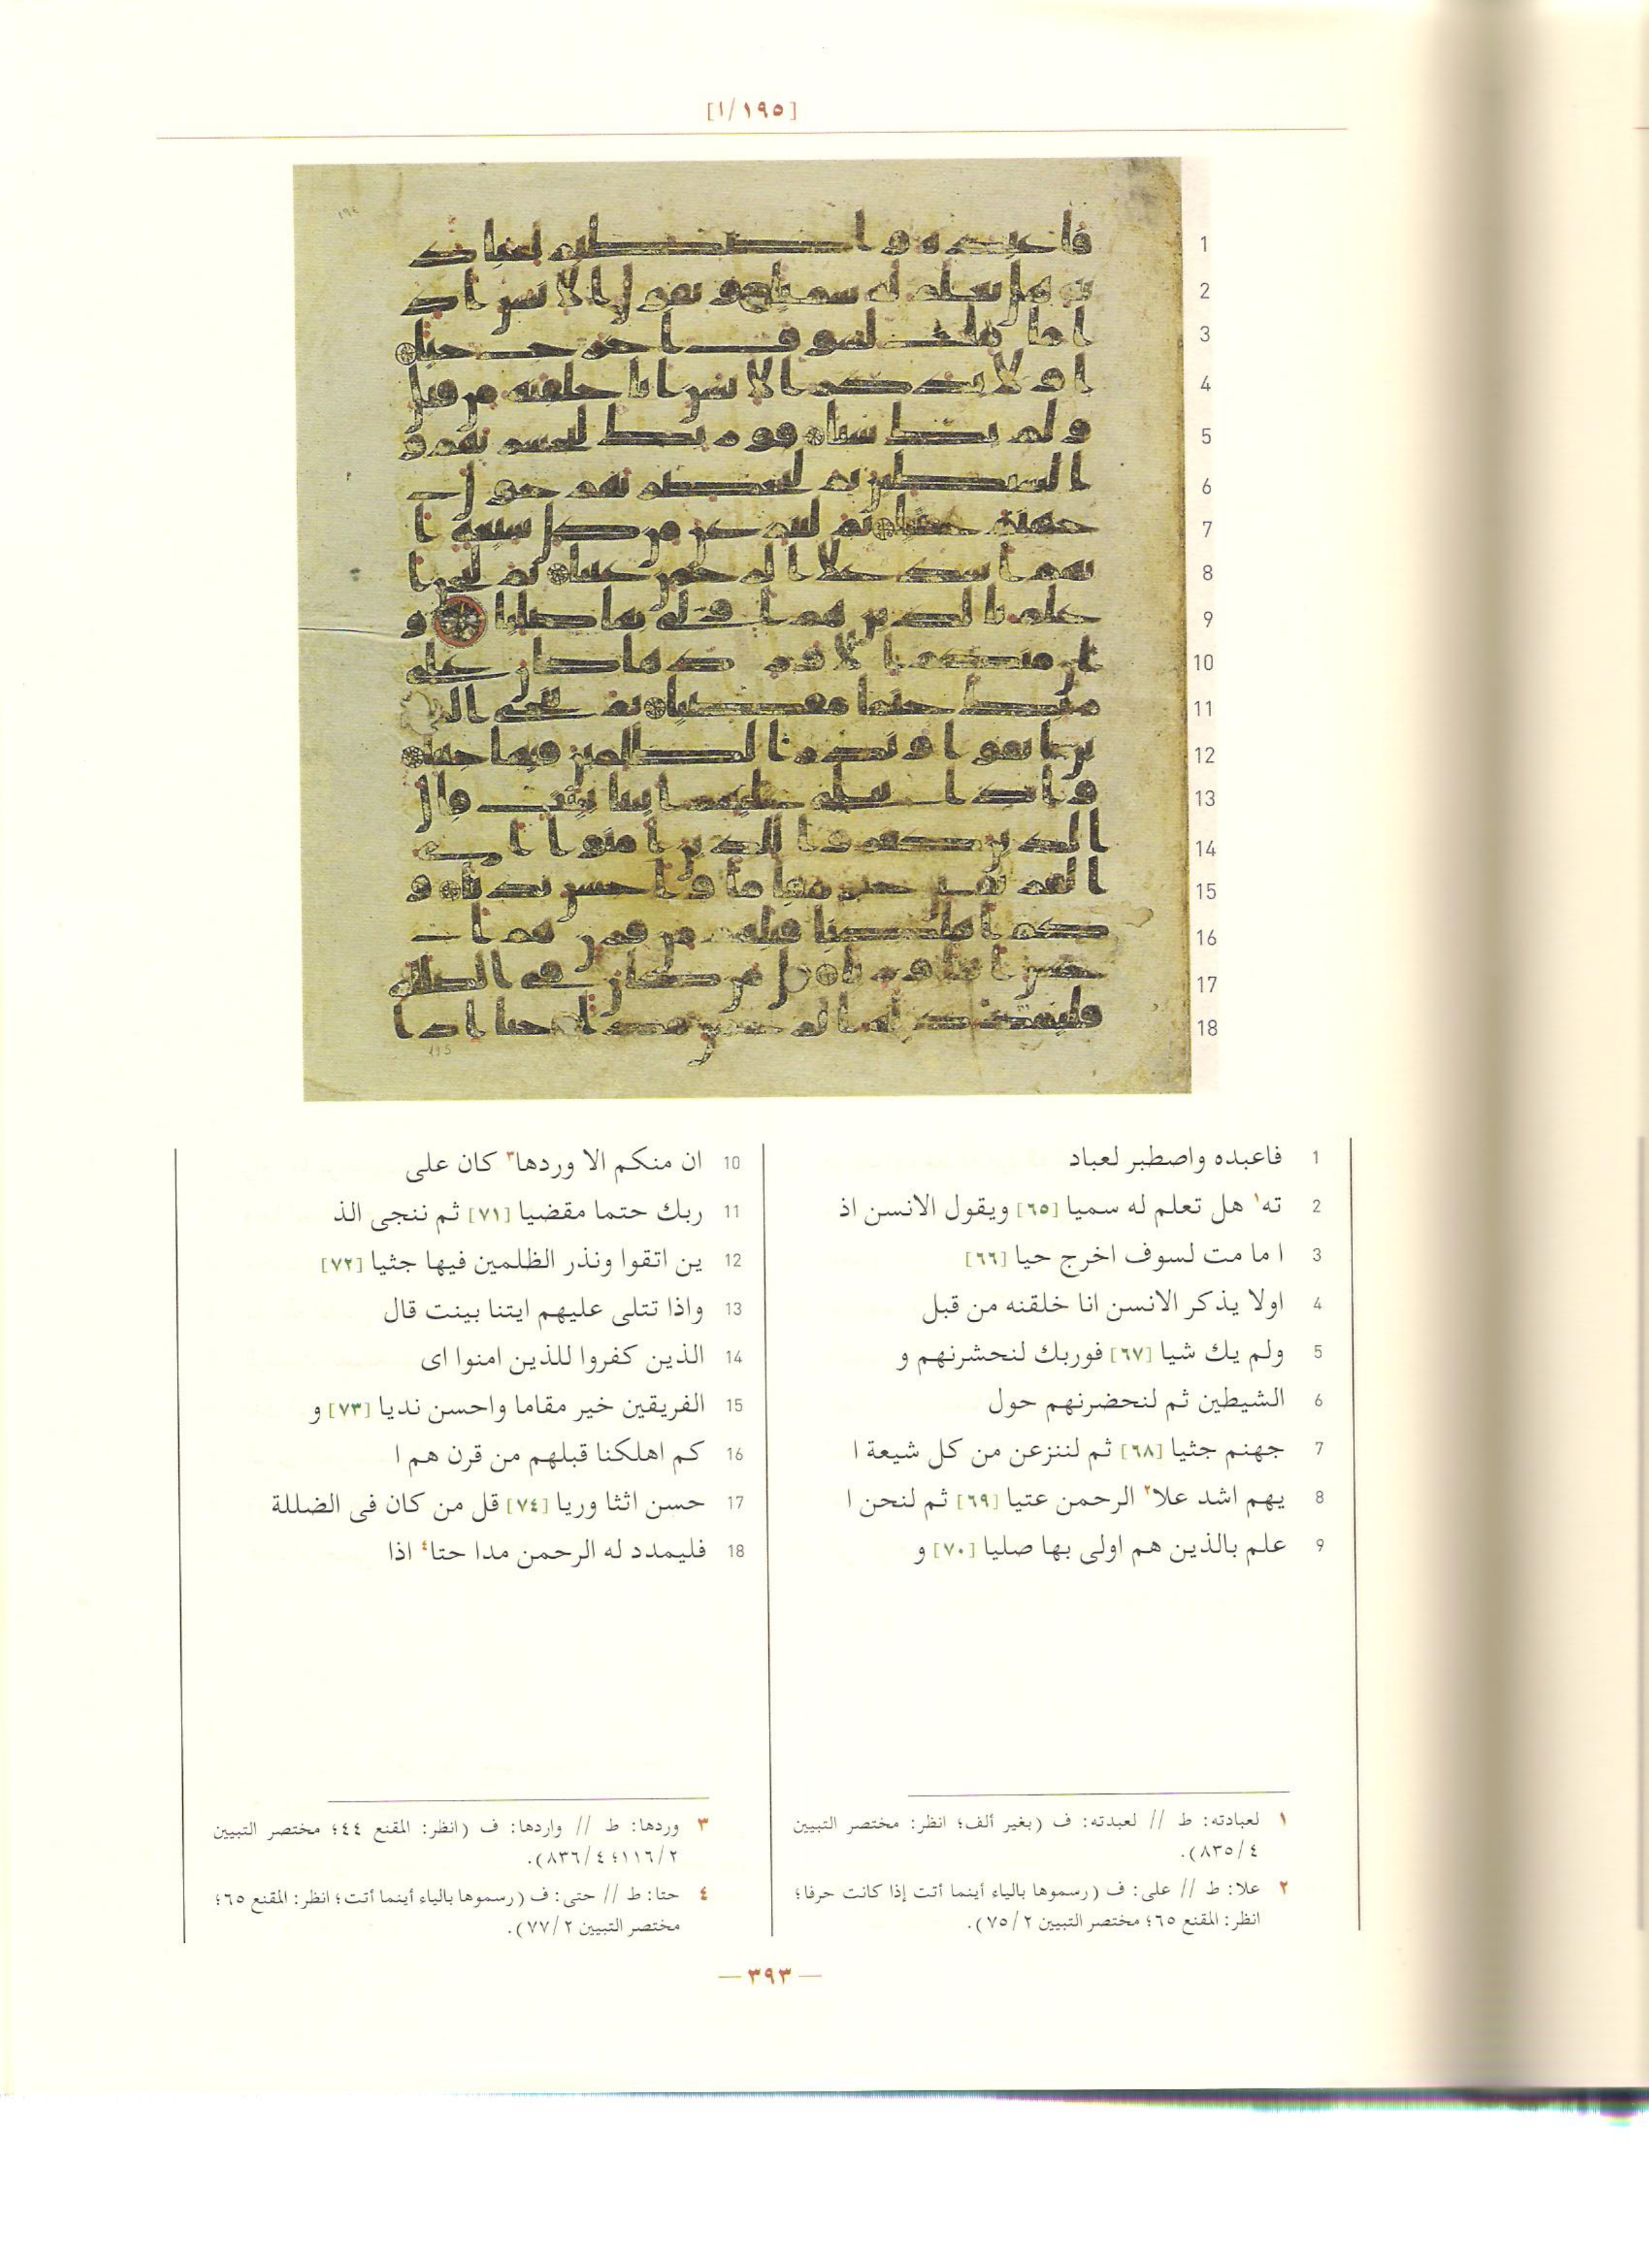 [١٩٥/١]
1
2
3
4
5
6
7
8
9
10
11
12
13
14
15
16
17
18
1 فاعبده واصطبر لعباد
2 ته١ هل تعلم له سميا [٦٥] ويقول الانسن اذ
3 ا ما مت لسوف اخرج حيا [٦٦]
4 اولا يذكر الانسن انا خلقنه من قبل
5 ولم يك شيا [٦٧] فوربك لنحشرنهم و
6 الشيطين ثم لنحضرنهم حول
7 جهنم جثيا [٦٨] ثم لننزعن من كل شيعة ا
8 يهم اشد علا٢ الرحمن عتيا [٦٩] ثم لنحن ا
9 علم بالذين هم اولى بها صليا [٧٠] و
10 ان منكم الا وردها٣ كان على
11 ربك حتما مقضيا [٧١] ثم ننجى الذ
12 ين اتقوا ونذر الظلمين فيها جثيا [٧٢]
13 واذا تتلى عليهم ايتنا بينت قال
14 الذين كفروا للذين امنوا اى
15 الفريقين خير مقاما واحسن نديا [٧٣] و
16 كم اهلكنا قبلهم من قرن هم ا
17 حسن اثثا وريا [٧٤] قل من كان فى الضللة
18 فليمدد له الرحمن مدا حتا٤ اذا
١ لعبادته: ط // لعبدته: ف (بغير ألف؛ انظر: مختصر التبيين
٤/٨٣٥).
٢ علا: ط // على: ف (رسموها بالياء أينما أتت إذا كانت حرفا؛
انظر: المقنع ٦٥؛ مختصر التبيين ٢/٧٥).
٣ وردها: ط // واردها: ف (انظر: المقنع ٤٤؛ مختصر التبيين
٢/١١٦؛ ٤/٨٣٦).
٤ حتا: ط // حتى: ف (رسموها بالياء أينما أتت؛ انظر: المقنع ٦٥؛
مختصر التبيين ٢/٧٧).
— ٣٩٣ —